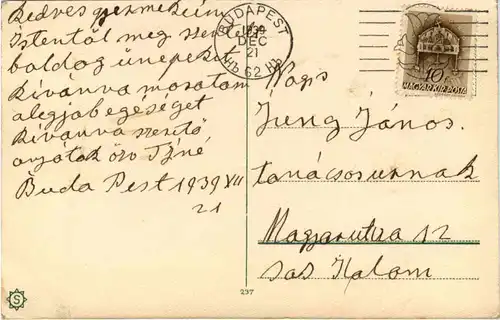 kedves gyermekeim
Istentől meg szentelt
boldog ünepeket
kivánva mosatom
alegjab egeséget
kivánva szerető
anyátok özv Tjné
Buda Pest 1939 XII
21
BUDAPEST
1939
DEC
21
62
10 F
MAGYAR KIR. POSTA
Nags
Jung János
tanácsosurnak
Magyarutza 12
Sas Halom
237
S